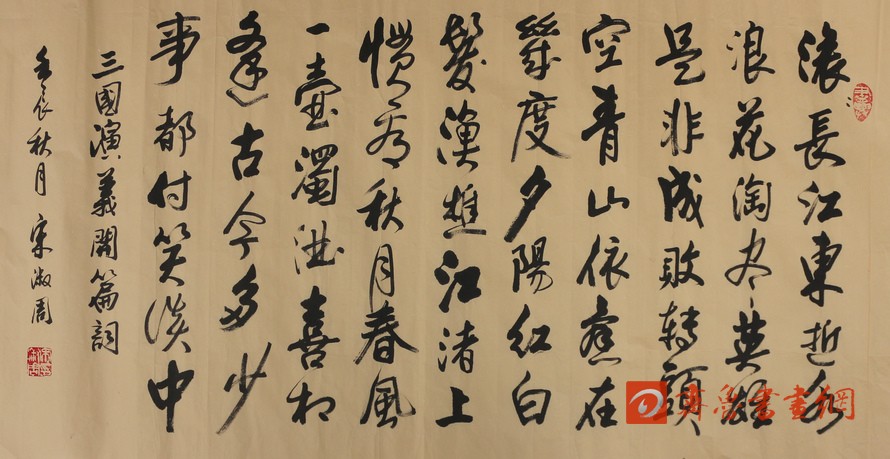 滚〻長江東逝水
浪花淘尽英雄
是非成敗轉頭
空青山依舊在
幾度夕陽紅白
髮漁樵江渚上
慣看秋月春風
一壺濁酒喜相
逢古今多少
事都付笑談中
三國演義開篇詞
壬辰秋月 宋淑周
書畫網